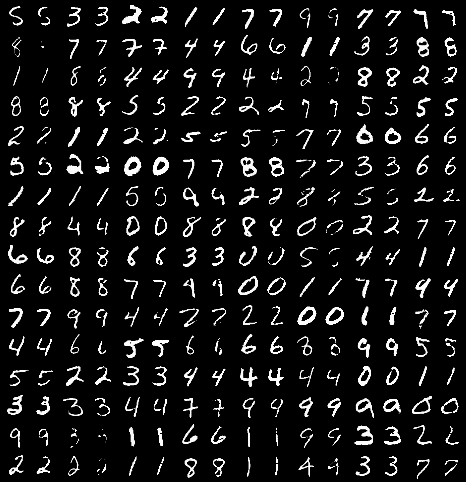 5 5 3 3 2 2 1 1 7 7 9 9 7 7 7 7
8 7 7 7 7 4 4 6 6 1 1 3 3 8 8
1 1 8 8 4 4 9 9 4 4 2 2 8 8 2 2
8 8 8 8 5 5 2 2 2 2 7 7 5 5 5 5
2 2 1 1 2 2 5 5 5 5 7 7 0 0 6 6
5 5 2 2 0 0 7 7 8 8 7 7 3 3 6 6
1 1 1 1 5 5 9 9 2 2 8 8 5 5 2 2
8 8 4 4 0 0 8 8 8 8 0 0 2 2 7 7
6 6 8 8 6 6 3 3 0 0 5 5 4 4 1 1
6 6 8 8 7 7 9 9 0 0 1 1 7 7 9 9
7 7 9 9 4 4 7 7 2 2 0 0 1 1 7 7
4 4 6 6 5 5 6 6 6 6 8 8 9 9 5 5
5 5 2 2 3 3 4 4 4 4 4 4 0 0 1 1
3 3 3 3 4 4 7 7 9 9 9 9 9 9 0 0
9 9 3 3 1 1 6 6 1 1 9 9 3 3 2 2
2 2 2 2 1 1 8 8 1 1 4 4 3 3 7 7